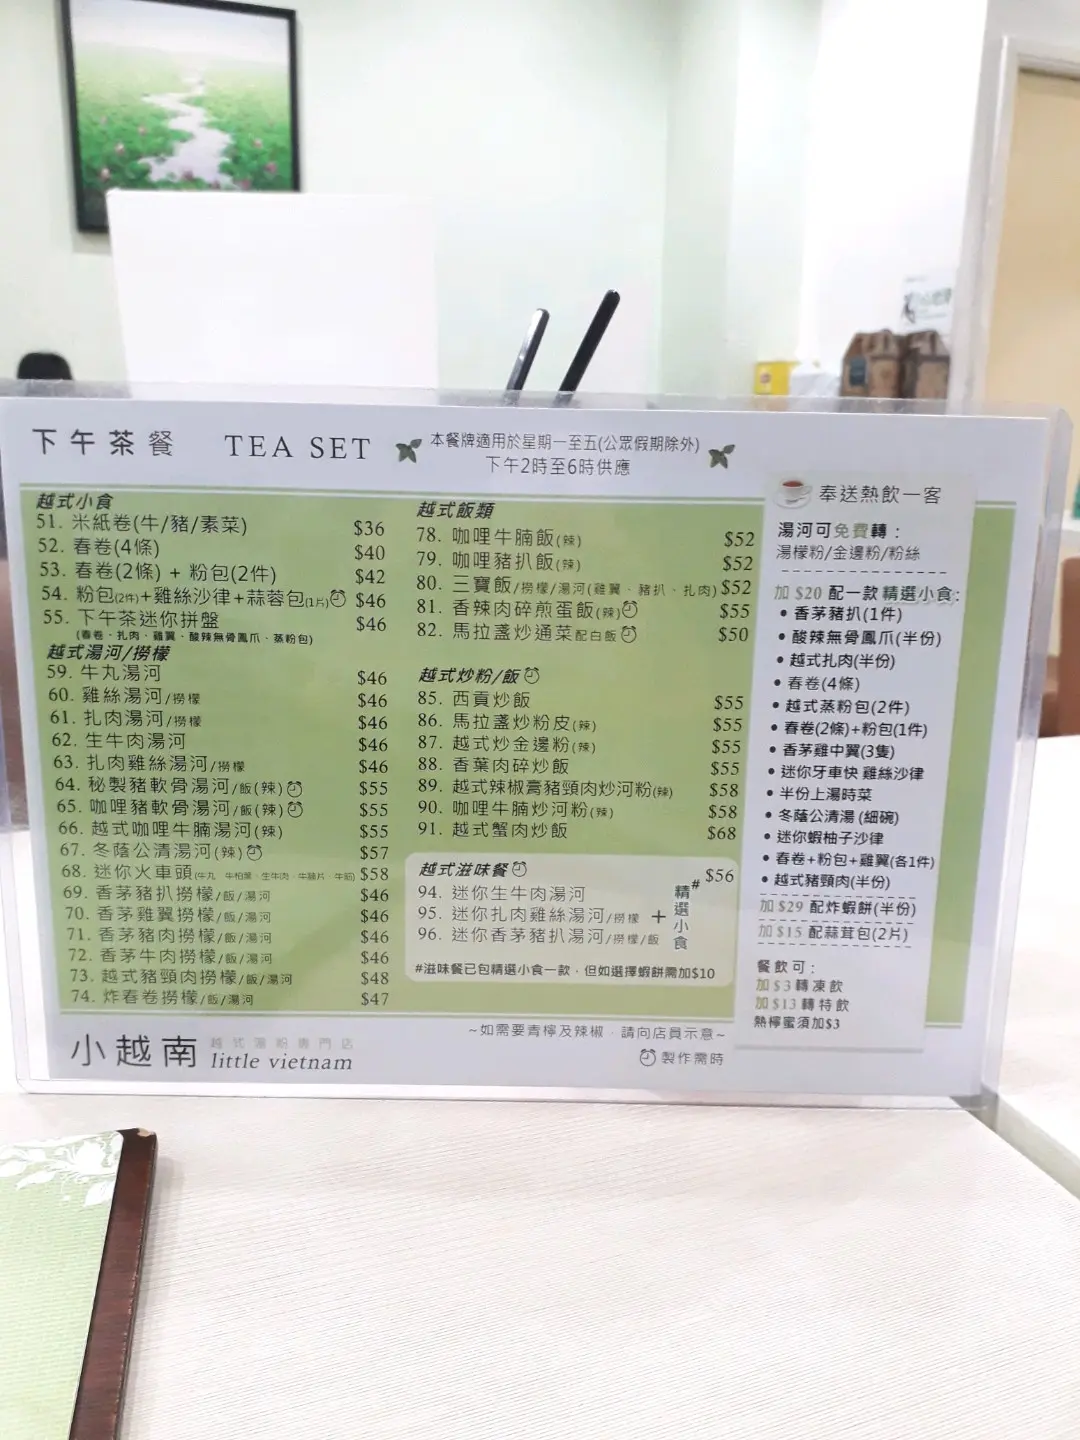 下午茶餐 TEA SET
本餐牌適用於星期一至五(公眾假期除外)
下午2時至6時供應
越式小食
51. 米紙卷(牛/豬/素菜) $36
52. 春卷(4條) $40
53. 春卷(2條) + 粉包(2件) $42
54. 粉包(2件)+雞絲沙律+蒜蓉包(1片) $46
55. 下午茶迷你拼盤 $46
(春卷、扎肉、雞翼、酸辣無骨鳳爪、蒸粉包)
越式湯河/撈檬
59. 牛丸湯河 $46
60. 雞絲湯河/撈檬 $46
61. 扎肉湯河/撈檬 $46
62. 生牛肉湯河 $46
63. 扎肉雞絲湯河/撈檬 $46
64. 秘製豬軟骨湯河/飯(辣) $55
65. 咖哩豬軟骨湯河/飯(辣) $55
66. 越式咖哩牛腩湯河(辣) $55
67. 冬蔭公清湯河(辣) $57
68. 迷你火車頭(牛丸、牛柏葉、生牛肉、牛腩片、牛筋) $58
69. 香茅豬扒撈檬/飯/湯河 $46
70. 香茅雞翼撈檬/飯/湯河 $46
71. 香茅豬肉撈檬/飯/湯河 $46
72. 香茅牛肉撈檬/飯/湯河 $46
73. 越式豬頸肉撈檬/飯/湯河 $48
74. 炸春卷撈檬/飯/湯河 $47
越式飯類
78. 咖哩牛腩飯(辣) $52
79. 咖哩豬扒飯(辣) $52
80. 三寶飯/撈檬/湯河(雞翼、豬扒、扎肉) $52
81. 香辣肉碎煎蛋飯(辣) $55
82. 馬拉盞炒通菜配白飯 $50
越式炒粉/飯
85. 西貢炒飯 $55
86. 馬拉盞炒粉皮(辣) $55
87. 越式炒金邊粉(辣) $55
88. 香葉肉碎炒飯 $55
89. 越式辣椒膏豬頸肉炒河粉(辣) $58
90. 咖哩牛腩炒河粉(辣) $58
91. 越式蟹肉炒飯 $68
越式滋味餐 $56
94. 迷你生牛肉湯河
95. 迷你扎肉雞絲湯河/撈檬
96. 迷你香茅豬扒湯河/撈檬/飯
+ 精選小食#
#滋味餐已包精選小食一款，但如選擇蝦餅需加$10
奉送熱飲一客
湯河可免費轉：
湯檬粉/金邊粉/粉絲
加 $20 配一款精選小食：
• 香茅豬扒(1件)
• 酸辣無骨鳳爪(半份)
• 越式扎肉(半份)
• 春卷(4條)
• 越式蒸粉包(2件)
• 春卷(2條)+粉包(1件)
• 香茅雞中翼(3隻)
• 迷你牙車快 雞絲沙律
• 半份上湯時菜
• 冬蔭公清湯 (細碗)
• 迷你蝦柚子沙律
• 春卷+粉包+雞翼(各1件)
• 越式豬頸肉(半份)
加 $29 配炸蝦餅(半份)
加 $15 配蒜茸包(2片)
餐飲可：
加 $3 轉凍飲
加 $13 轉特飲
熱檸蜜須加$3
~如需要青檸及辣椒，請向店員示意~
製作需時
小越南 越式湯粉專門店
little vietnam